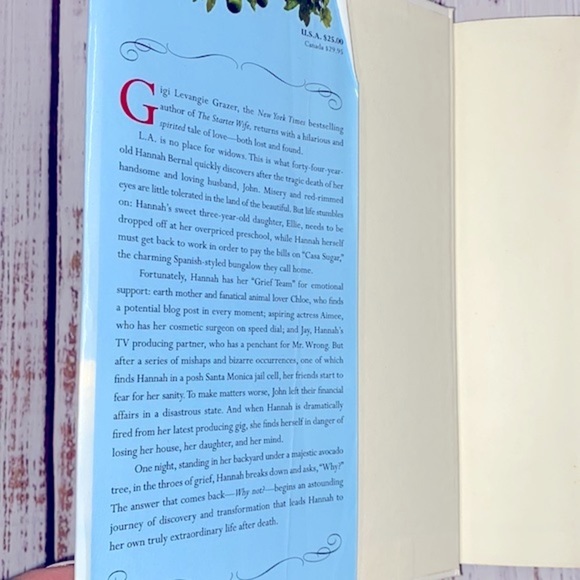 U.S.A. $25.00
Canada $29.95
Gigi Levangie Grazer, the New York Times bestselling
author of The Starter Wife, returns with a hilarious and
spirited tale of love—both lost and found.
L.A. is no place for widows. This is what forty-four-year-
old Hannah Bernal quickly discovers after the tragic death of her
handsome and loving husband, John. Misery and red-rimmed
eyes are little tolerated in the land of the beautiful. But life stumbles
on: Hannah's sweet three-year-old daughter, Ellie, needs to be
dropped off at her overpriced preschool, while Hannah herself
must get back to work in order to pay the bills on "Casa Sugar,"
the charming Spanish-styled bungalow they call home.
Fortunately, Hannah has her "Grief Team" for emotional
support: earth mother and fanatical animal lover Chloe, who finds
a potential blog post in every moment; aspiring actress Aimee,
who has her cosmetic surgeon on speed dial; and Jay, Hannah's
TV producing partner, who has a penchant for Mr. Wrong. But
after a series of mishaps and bizarre occurrences, one of which
finds Hannah in a posh Santa Monica jail cell, her friends start to
fear for her sanity. To make matters worse, John left their financial
affairs in a disastrous state. And when Hannah is dramatically
fired from her latest producing gig, she finds herself in danger of
losing her house, her daughter, and her mind.
One night, standing in her backyard under a majestic avocado
tree, in the throes of grief, Hannah breaks down and asks, "Why?"
The answer that comes back—Why not?—begins an astounding
journey of discovery and transformation that leads Hannah to
her own truly extraordinary life after death.